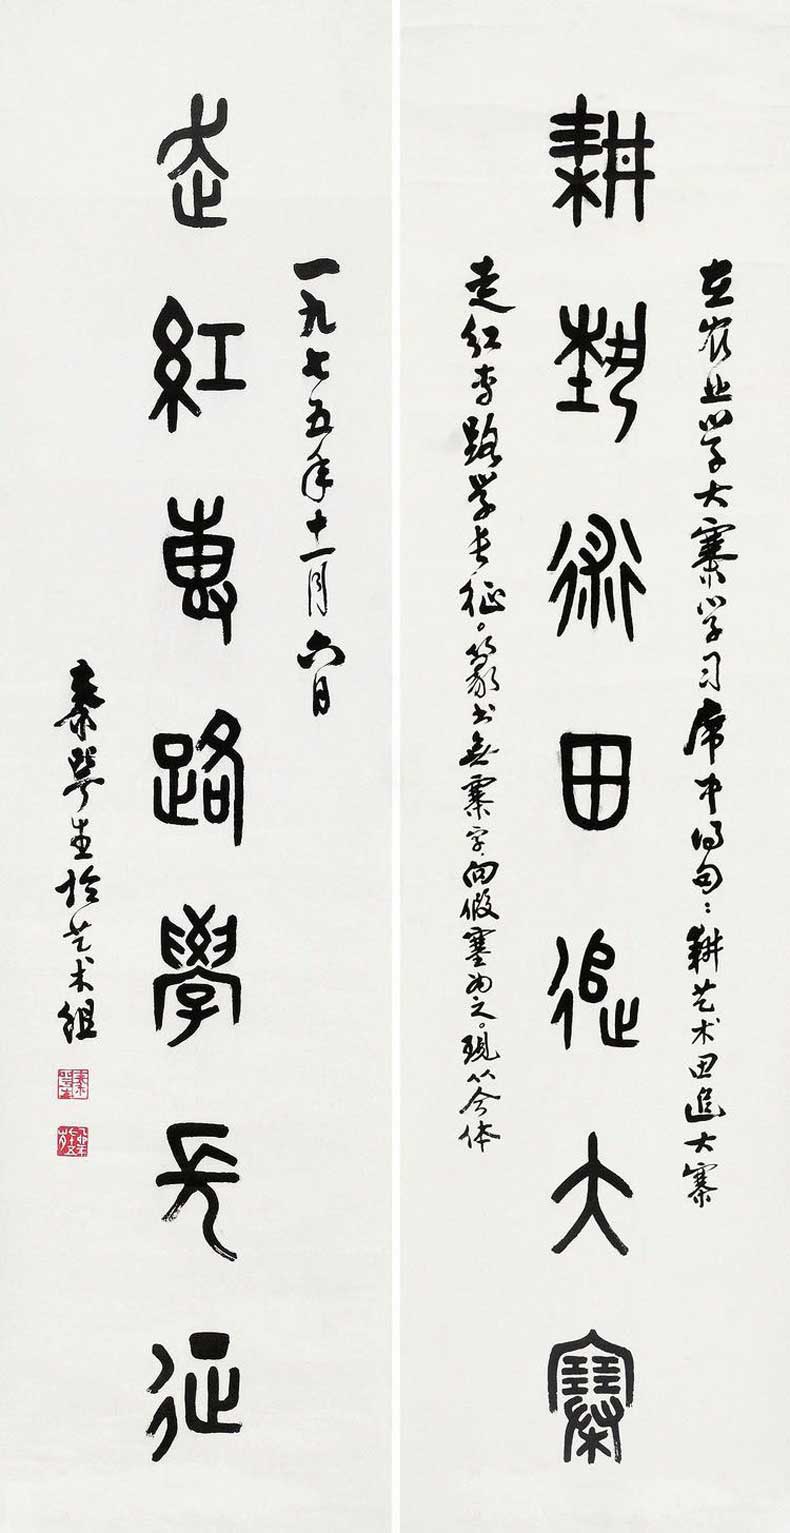 在农业学大寨学习席中得句:耕艺术田追大寨
耕埶術田追大寨
走红专路学长征。篆书无寨字,向假塞为之。现从今体
一九七五年十一月六日
走紅專路學長征
秦咢生於艺术组
秦咢生